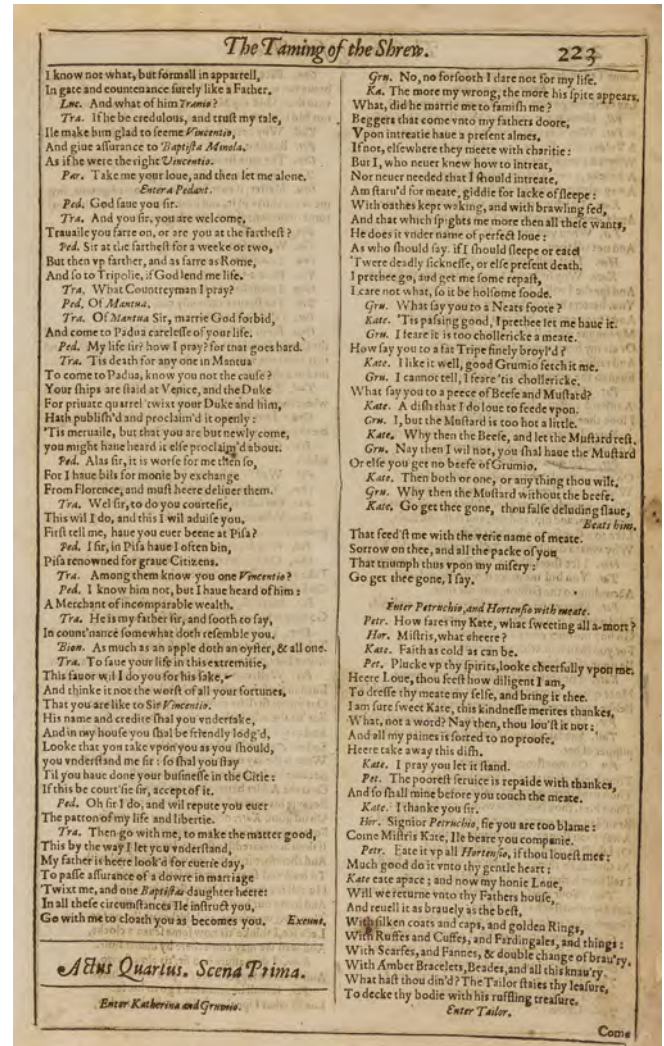 The Taming of the Shrew. 223
I know not what, but formall in apparrell,
In gate and countenance ſurely like a Father.
Luc. And what of him Tranio?
Tra. If he be credulous, and truſt my tale,
Ile make him glad to ſeeme Vincentio,
And giue aſſurance to Baptiſta Minola.
As if he were the right Vincentio.
Par. Take me your loue, and then let me alone.
Enter a Pedant.
Ped. God ſaue you ſir.
Tra. And you ſir, you are welcome,
Trauaile you farre on, or are you at the fartheſt?
Ped. Sir at the fartheſt for a weeke or two,
But then vp farther, and as farre as Rome,
And ſo to Tripolie, if God lend me life.
Tra. What Countreyman I pray?
Ped. Of Mantua.
Tra. Of Mantua Sir, marrie God forbid,
And come to Padua careleſſe of your life.
Ped. My life ſir? how I pray? for that goes hard.
Tra. 'Tis death for any one in Mantua
To come to Padua, know you not the cauſe?
Your ſhips are ſtaid at Venice, and the Duke
For priuate quarrel 'twixt your Duke and him,
Hath publiſh'd and proclaim'd it openly:
'Tis meruaile, but that you are but newly come,
you might haue heard it elſe proclaim'd about.
Ped. Alas ſir, it is worſe for me then ſo,
For I haue bils for monie by exchange
From Florence, and muſt heere deliuer them.
Tra. Wel ſir, to do you courteſie,
This wil I do, and this I wil aduiſe you,
Firſt tell me, haue you euer beene at Piſa?
Ped. I ſir, in Piſa haue I often bin,
Piſa renowned for graue Citizens.
Tra. Among them know you one Vincentio?
Ped. I know him not, but I haue heard of him:
A Merchant of incomparable wealth.
Tra. He is my father ſir, and ſooth to ſay,
In count'nance ſomewhat doth reſemble you.
Bion. As much as an apple doth an oyſter, & all one.
Tra. To ſaue your life in this extremitie,
This fauor wil I do you for his ſake,
And thinke it not the worſt of all your fortunes,
That you are like to Sir Vincentio.
His name and credite ſhal you vndertake,
And in my houſe you ſhal be friendly lodg'd,
Looke that you take vpon you as you ſhould,
you vnderſtand me ſir: ſo ſhal you ſtay
Til you haue done your buſineſſe in the Citie:
If this be court'ſie ſir, accept of it.
Ped. Oh ſir I do, and wil repute you euer
The patron of my life and libertie.
Tra. Then go with me, to make the matter good,
This by the way I let you vnderſtand,
My father is heere look'd for euerie day,
To paſſe aſſurance of a dowre in marriage
'Twixt me, and one Baptiſtas daughter heere:
In all theſe circumſtances Ile inſtruct you,
Go with me to cloath you as becomes you. Exeunt.
Actus Quartus. Scena Prima.
Enter Katherina and Grumio.
Gru. No, no forſooth I dare not for my life.
Ka. The more my wrong, the more his ſpite appears.
What, did he marrie me to famiſh me?
Beggers that come vnto my fathers doore,
Vpon intreatie haue a preſent almes,
If not, elſewhere they meete with charitie:
But I, who neuer knew how to intreat,
Nor neuer needed that I ſhould intreate,
Am ſtaru'd for meate, giddie for lacke of ſleepe:
With oathes kept waking, and with brawling fed,
And that which ſpights me more then all theſe wants,
He does it vnder name of perfect loue:
As who ſhould ſay. if I ſhould ſleepe or eate
'Twere deadly ſickneſſe, or elſe preſent death.
I prethee go, and get me ſome repaſt,
I care not what, ſo it be holſome foode.
Gru. What ſay you to a Neats foote?
Kate. 'Tis paſſing good, I prethee let me haue it.
Gru. I feare it is too chollericke a meate.
How ſay you to a fat Tripe finely broyl'd?
Kate. I like it well, good Grumio fetch it me.
Gru. I cannot tell, I feare 'tis chollericke.
What ſay you to a peece of Beefe and Muſtard?
Kate. A diſh that I do loue to feede vpon.
Gru. I, but the Muſtard is too hot a little.
Kate. Why then the Beefe, and let the Muſtard reſt.
Gru. Nay then I wil not, you ſhal haue the Muſtard
Or elſe you get no beefe of Grumio.
Kate. Then both or one, or any thing thou wilt.
Gru. Why then the Muſtard without the beefe.
Kate. Go get thee gone, thou falſe deluding ſlaue,
Beats him.
That feed'ſt me with the verie name of meate.
Sorrow on thee, and all the packe of you
That triumph thus vpon my miſery:
Go get thee gone, I ſay.
Enter Petruchio, and Hortenſio with meate.
Petr. How fares my Kate, what ſweeting all a-mort?
Hor. Miſtris, what cheere?
Kate. Faith as cold as can be.
Pet. Plucke vp thy ſpirits, looke cheerfully vpon me.
Heere Loue, thou ſeeſt how diligent I am,
To dreſſe thy meate my ſelfe, and bring it thee.
I am ſure ſweet Kate, this kindneſſe merites thankes.
What, not a word? Nay then, thou lou'ſt it not:
And all my paines is ſorted to no proofe.
Heere take away this diſh.
Kate. I pray you let it ſtand.
Pet. The pooreſt ſeruice is repaide with thankes,
And ſo ſhall mine before you touch the meate.
Kate. I thanke you ſir.
Hor. Signior Petruchio, fie you are too blame:
Come Miſtris Kate, Ile beare you companie.
Petr. Eate it vp all Hortenſio, if thou loueſt mee:
Much good do it vnto thy gentle heart:
Kate eate apace; and now my honie Loue,
Will we returne vnto thy Fathers houſe,
And reuell it as brauely as the beſt,
With ſilken coats and caps, and golden Rings,
With Ruffes and Cuffes, and Fardingales, and things:
With Scarfes, and Fannes, & double change of brau'ry.
With Amber Bracelets, Beades, and all this knau'ry.
What haſt thou din'd? The Tailor ſtaies thy leaſure,
To decke thy bodie with his ruffling treaſure.
Enter Tailor.
Come